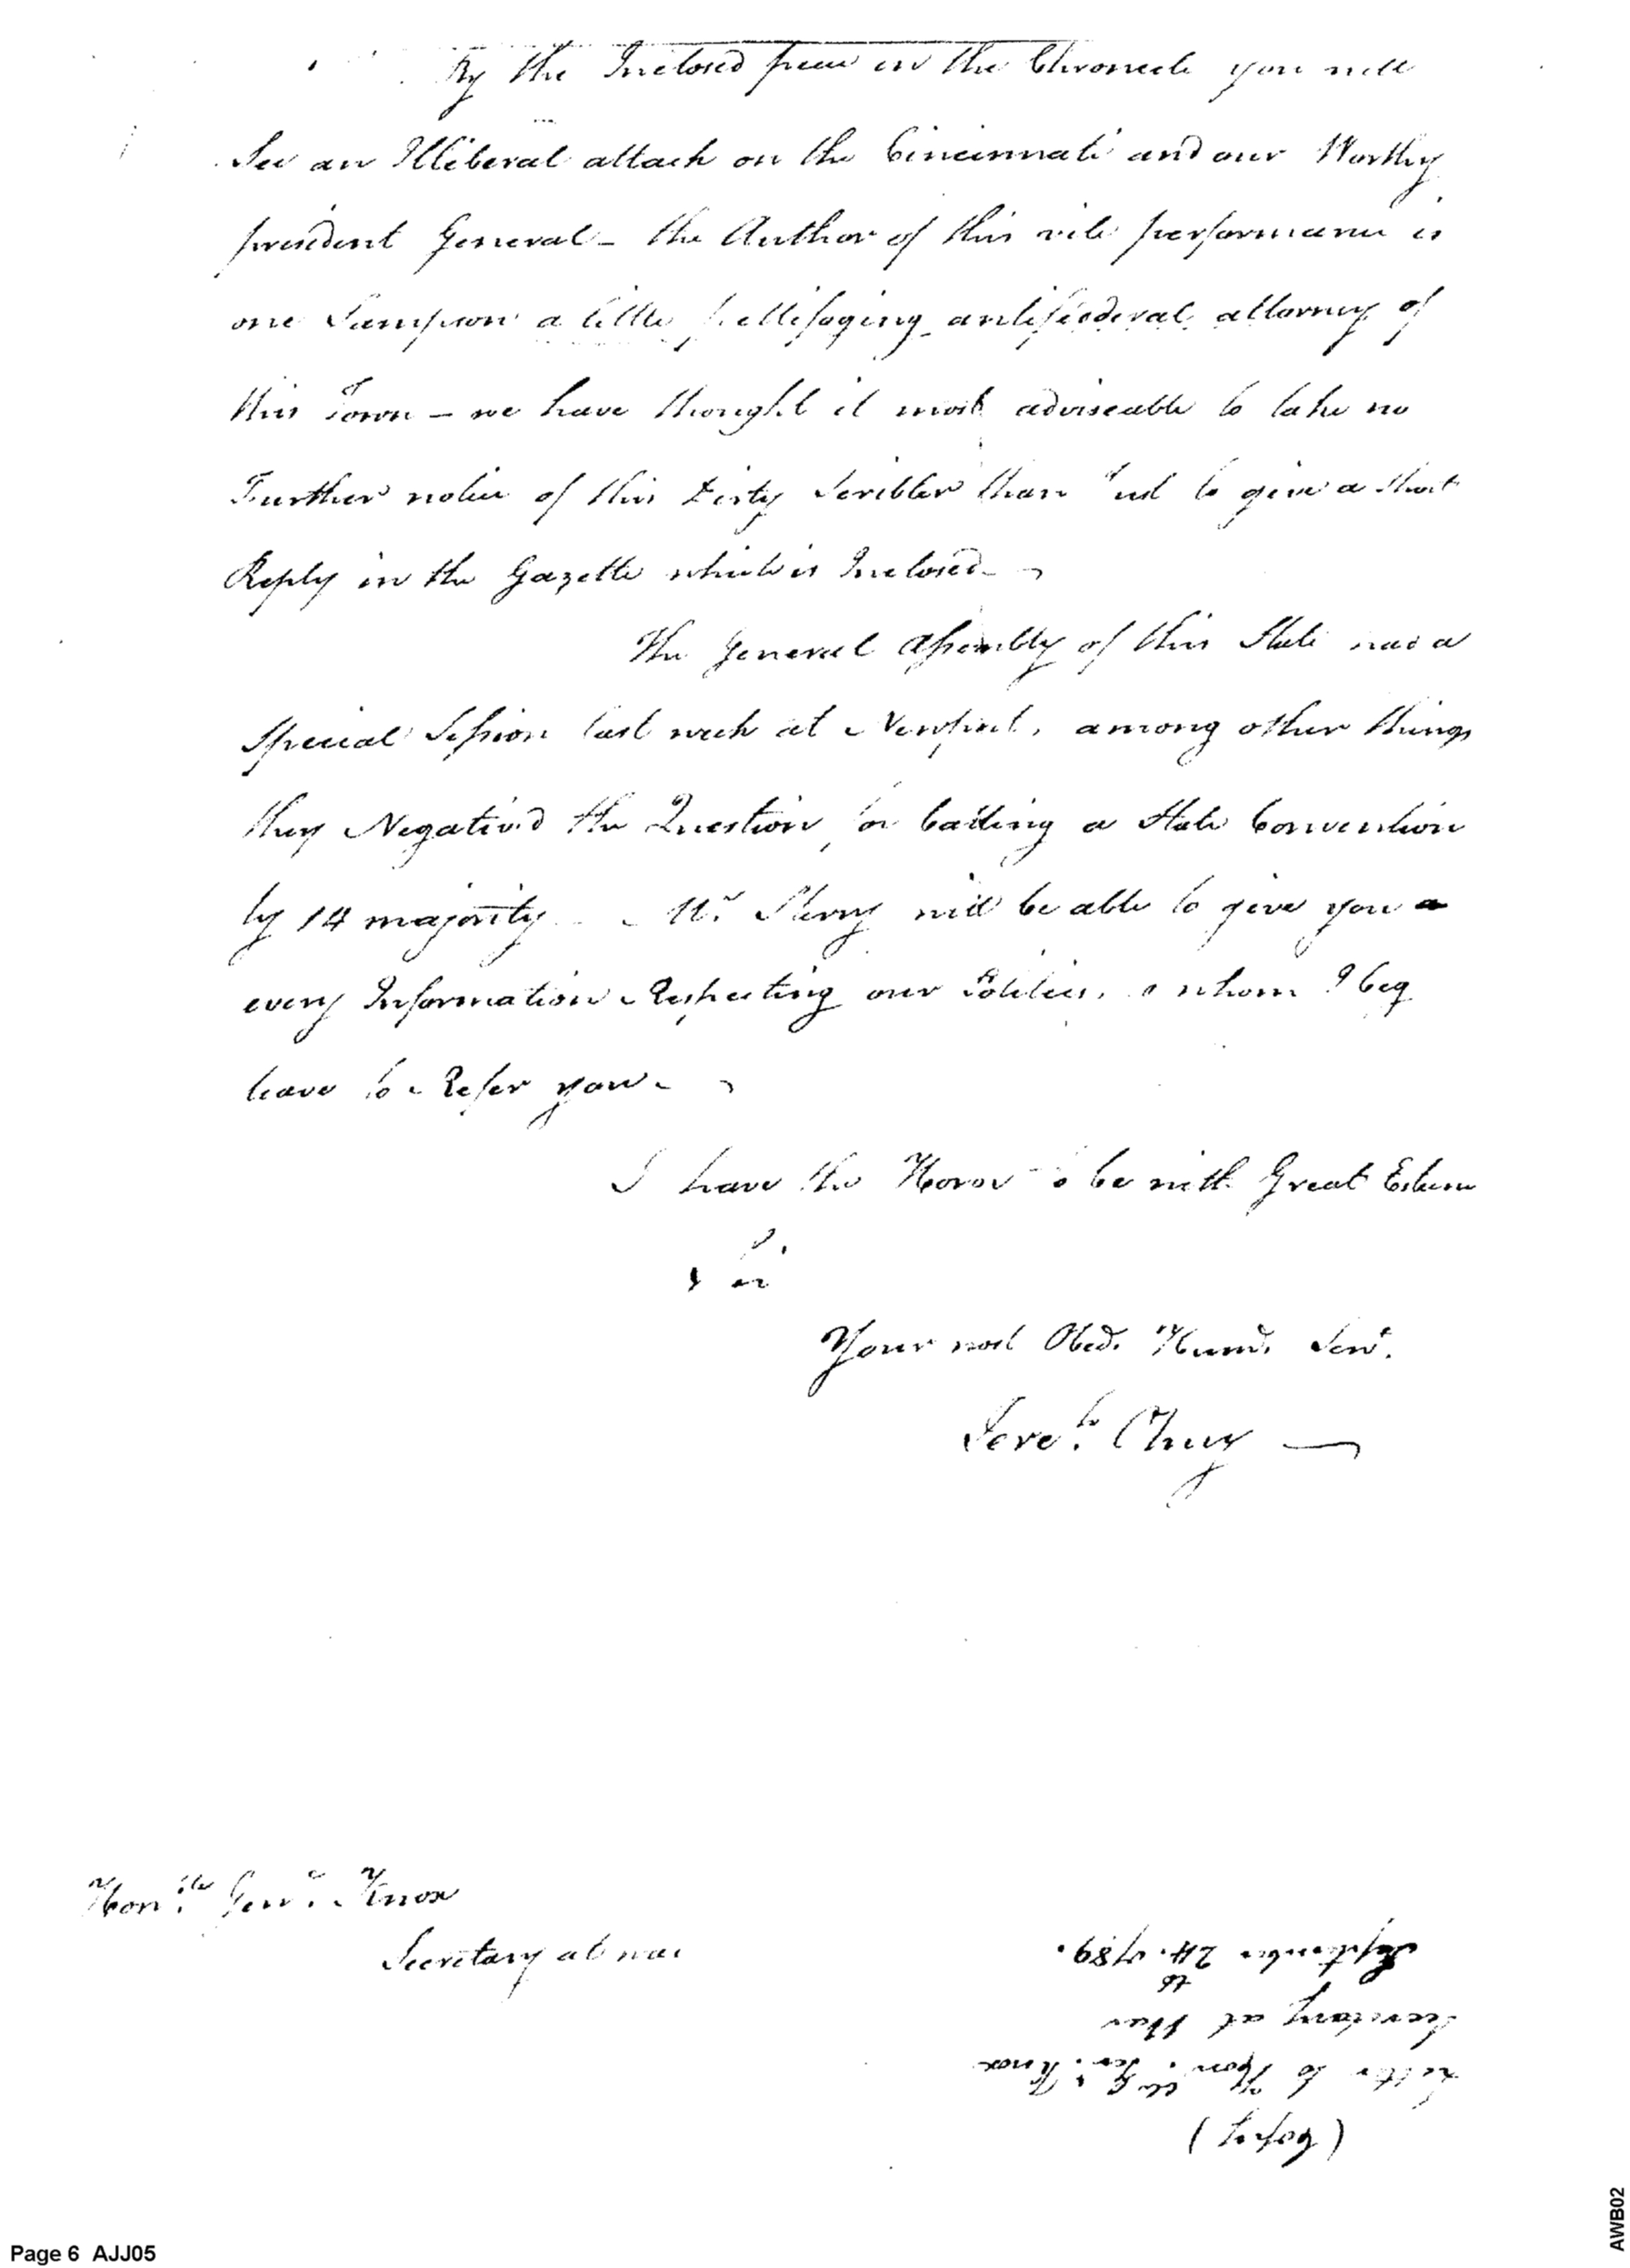 By the Inclosed piece in the Chronicle you will
See an Illiberal attack on the Cincinnati and our Worthy
president General – the Author of this vile performance is
one Sampson a little pettifoging antifeoderal attorney of
this Town – we have thought it most adviseable to take no
Further notice of this Dirty Scribler than Just to give a short
Reply in the Gazette which is Inclosed –
The General Assembly of this State had a
Special Session last week at Newport, among other things
they Negatived the Question for Calling a State Convention
by 14 majority – Mr. Sherry will be able to give you a
every Information Respecting our Politics, to whom I beg
leave to Refer you –
I have the Honor to be with Great Esteem
Sir
Your most Obed. Hum. Serv.
Jere.h Olney
Hon.ble Gen.l Knox
Secretary at war
(Copy)
Letter to Hon.ble Gen.l Knox
Secretary at War
September 24.th 1789.
Page 6 AJJ05
AWB02